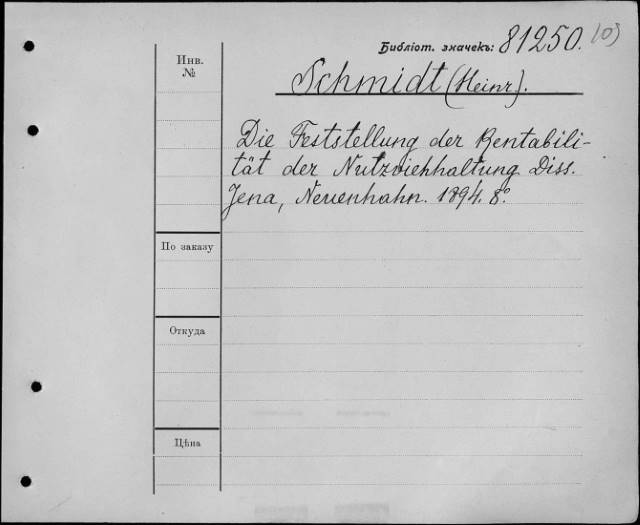 Библіот. значекъ: 81250. (0)
Инв.
№
Schmidt (Heinr).
Die Feststellung der Rentabili-
tät der Nutzviehhaltung Diss.
Jena, Neuenhahn. 1894. 8º.
По заказу
Откуда
Цѣна